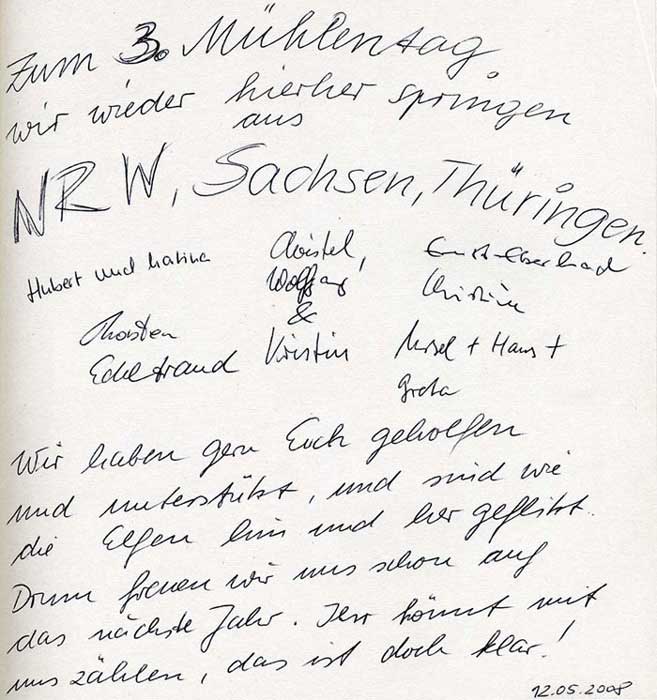 Zum 3. Mühlentag
wir wieder hierher springen
aus
NRW, Sachsen, Thüringen.
Hubert und Karina Christel, Ernst-Eberhard
Wolfgang Christin
&
Thorsten Kristin Ursel + Hans +
Eckstrand Greta
Wir haben gern Euch geholfen
und unterstützt, und sind wie
die Elfen hin und her geflitzt.
Drum freuen wir uns schon auf
das nächste Jahr. Ihr könnt mit
uns zählen, das ist doch klar!
12.05.2008